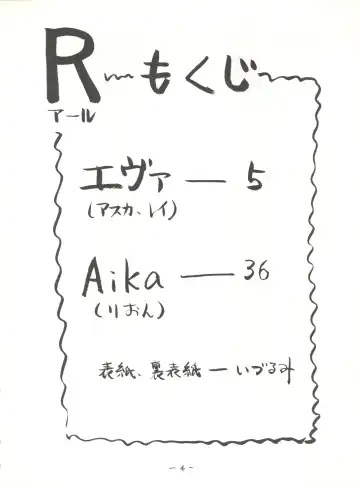 R〜もくじ〜
アール
エヴァ — 5
(アスカ、レイ)
Aika — 36
(りおん)
表紙、裏表紙 — いづるみ
-4-